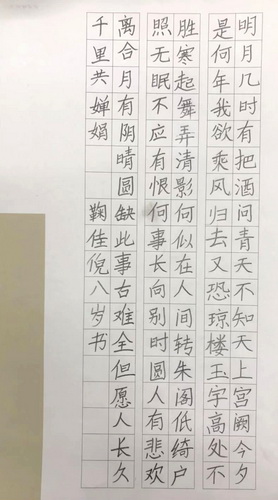 明月几时有把酒问青天不知天上宫阙今夕
是何年我欲乘风归去又恐琼楼玉宇高处不
胜寒起舞弄清影何似在人间转朱阁低绮户
照无眠不应有恨何事长向别时圆人有悲欢
离合月有阴晴圆缺此事古难全但愿人长久
千里共婵娟 鞠佳倪八岁书